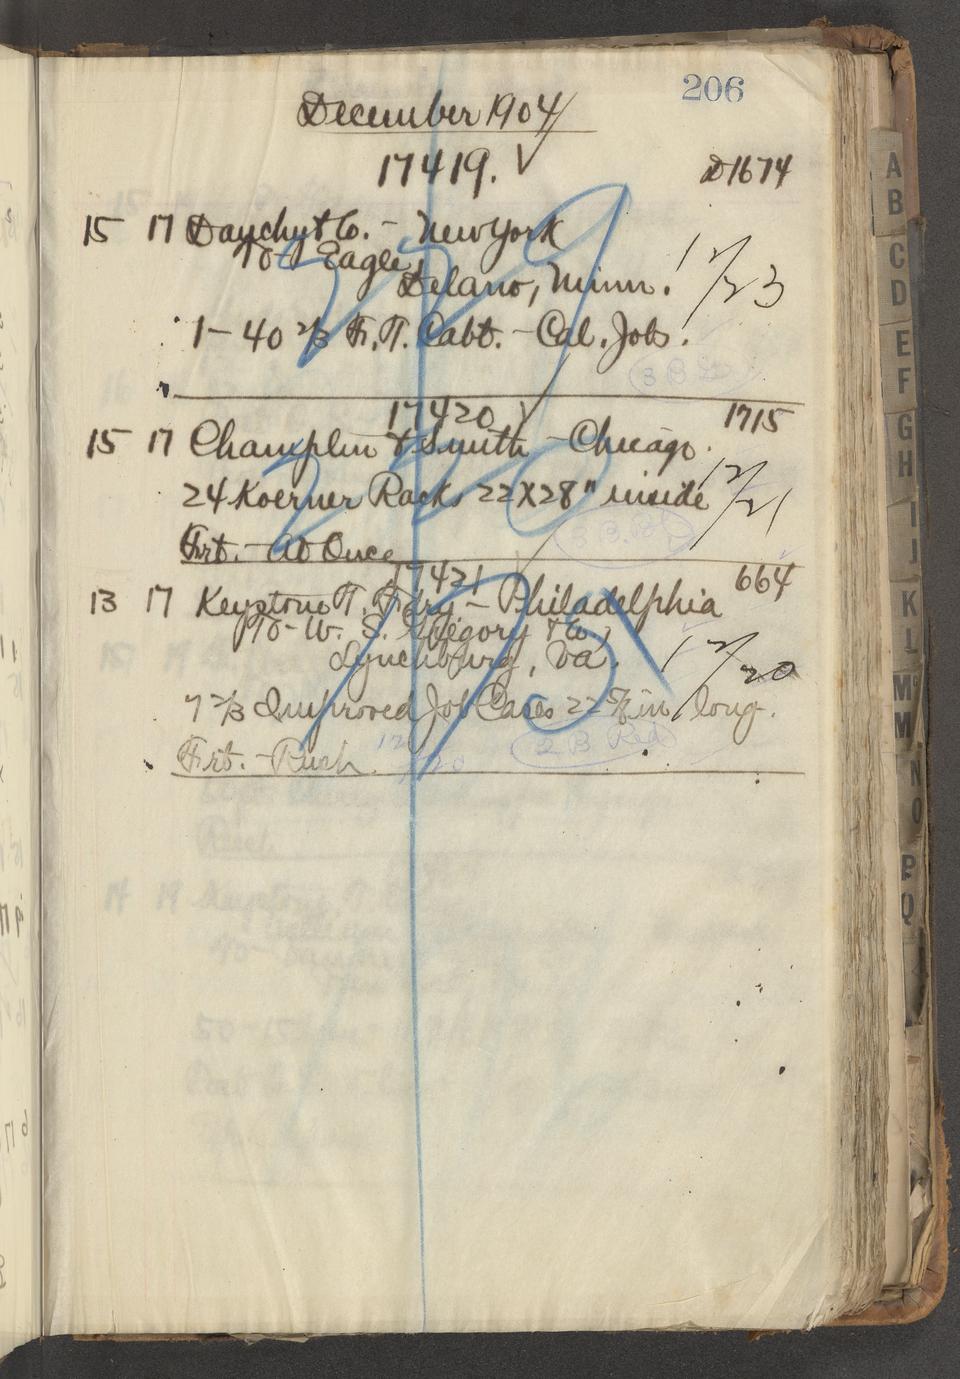 206
December 1904
17419. √
D1674
15 17 Dauchy & Co. - New York
To - Eagle,
Delano, Minn.
12/23
1 - 40 2/3 Fr. T. Cabt. - Cal. Jobs.
3 B
229
17420 √
1715
15 17 Champlin & Smith - Chicago.
24 Koerner Racks 22 x 28" inside
12/21
Frt. - At Once
3 B.
220
17421
664
13 17 Keystone T. Fdry - Philadelphia
To - W. S. Gregory & Co.,
Lynchburg, Va.
12/20
7 2/3 Improved Job Cases 22 in long.
Frt. - Rush.
12/20
2 B Red
A
B
C
D
E
F
G
H
I
J
K
L
Mc
M
N
O
P
Q